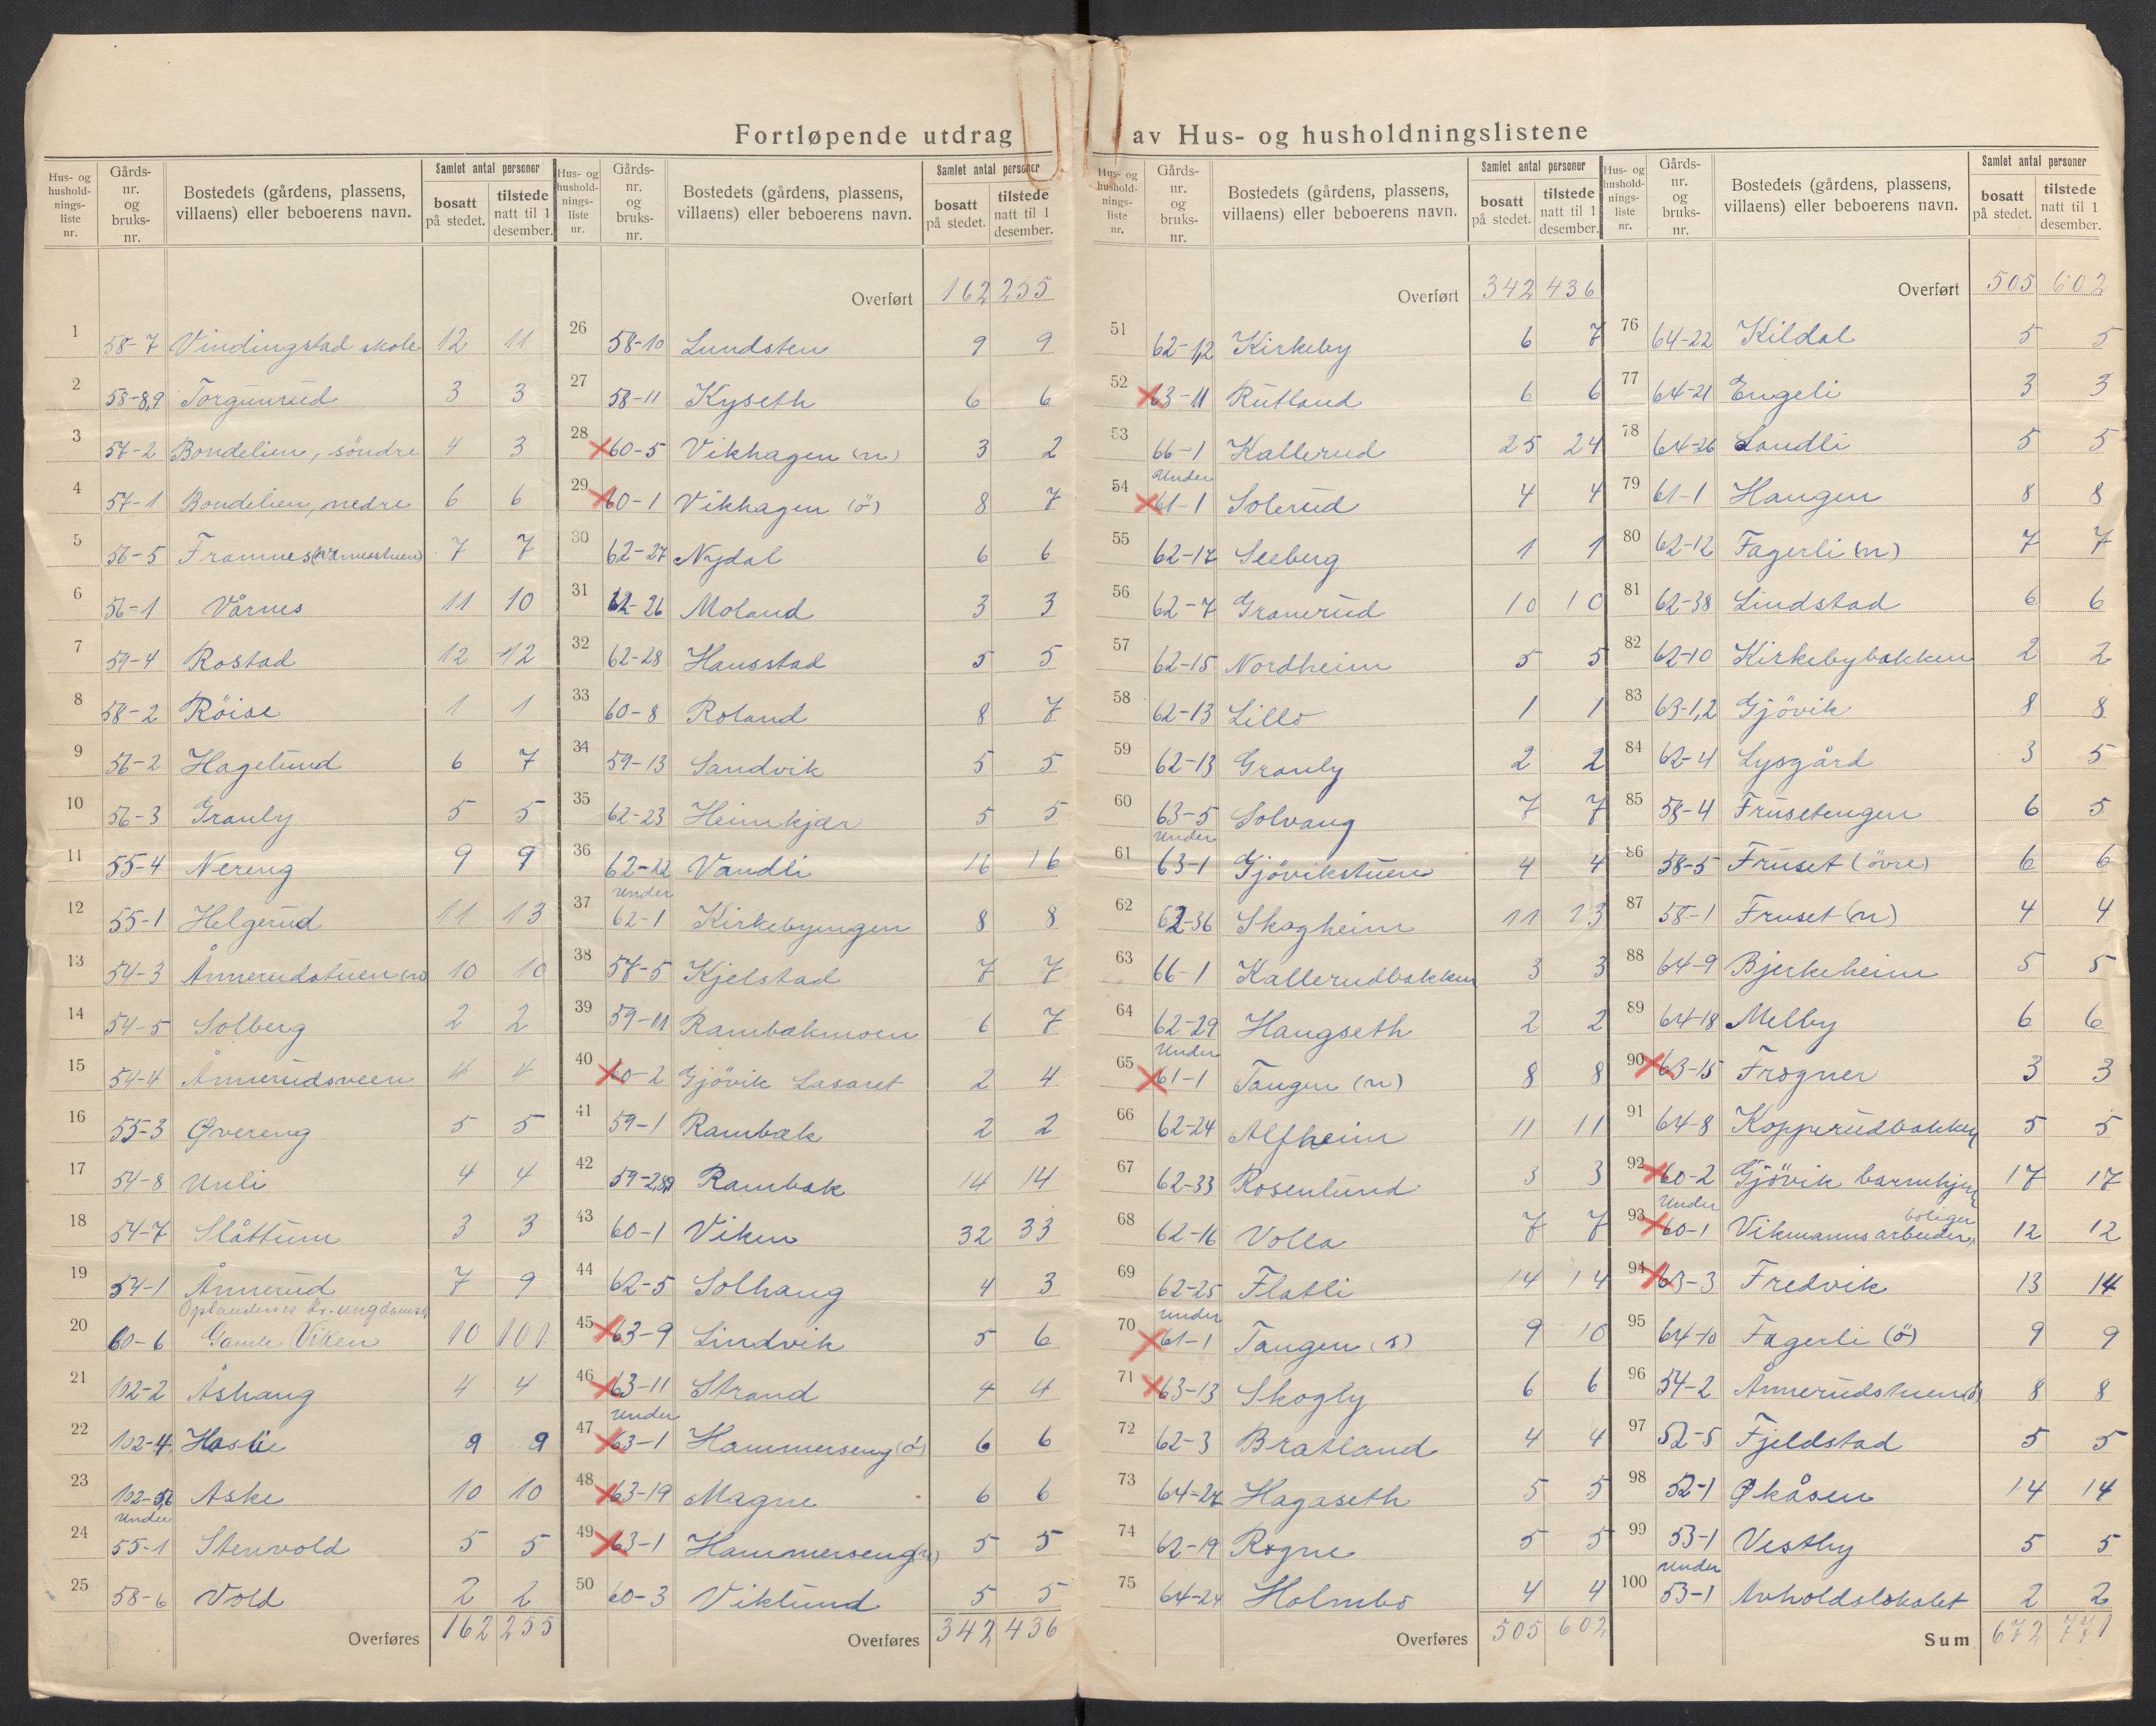 Fortløpende utdrag av Hus- og husholdningslistene
Hus- og husholdnings-liste nr. | Gårds-nr. og bruks-nr. | Bostedets (gårdens, plassens, villaens) eller beboerens navn. | Samlet antal personer | bosatt på stedet. | tilstede natt til 1 desember.
1 58-7 Vindingstad skole 12 11
2 58-8,9 Torgunrud 3 3
3 57-2 Bondelien, søndre 4 3
4 57-1 Bondelien, nedre 6 6
5 56-5 Framnes (Vårnesstuen) 7 7
6 56-1 Vårnes 11 10
7 59-4 Rostad 12 12
8 58-2 Röise 1 1
9 56-2 Hagelund 6 7
10 56-3 Granly 5 5
11 55-4 Nereng 9 9
12 55-1 Helgerud 11 13
13 54-3 Ånnerudstuen (n) 10 10
14 54-5 Solberg 2 2
15 54-4 Ånnerudsveen 4 4
16 55-3 Øvereng 5 5
17 54-8 Unli 4 4
18 54-7 Slåttum 3 3
19 54-1 Ånnerud 7 9
Oplandenes kr. ungdomssk
20 60-6 Gamle Viken 10 101
21 102-2 Åshaug 4 4
22 102-4 Haslie 9 9
23 102-5,6 Aske 10 10
Under
24 55-1 Stenvold 5 5
25 58-6 Vold 2 2
Overføres 162 255
Hus- og husholdnings-liste nr. | Gårds-nr. og bruks-nr. | Bostedets (gårdens, plassens, villaens) eller beboerens navn. | Samlet antal personer | bosatt på stedet. | tilstede natt til 1 desember.
Overført 162 255
26 58-10 Lundsten 9 9
27 58-11 Kyseth 6 6
28 60-5 Vikhagen (n) 3 2
29 60-1 Vikhagen (ö) 8 7
30 62-27 Nydal 6 6
31 62-26 Moland 3 3
32 62-28 Hausstad 5 5
33 60-8 Roland 8 7
34 59-13 Sandvik 5 5
35 62-23 Heimkjær 5 5
36 62-22 Vandli 16 16
Under
37 62-1 Kirkebyengen 8 8
38 57-5 Kjelstad 7 7
39 59-11 Rambækmoen 6 7
40 60-2 Gjövik Lasaret 2 4
41 59-1 Rambæk 2 2
42 59-2,8,9 Rambæk 14 14
43 60-1 Viken 32 33
44 62-5 Solhaug 4 3
45 63-9 Lindvik 5 6
46 63-11 Strand 4 4
Under
47 63-1 Hammerseng (ö) 6 6
48 63-19 Magne 6 6
49 63-1 Hammerseng (n) 5 5
50 60-3 Viklund 5 5
Overføres 342 436
Hus- og husholdnings-liste nr. | Gårds-nr. og bruks-nr. | Bostedets (gårdens, plassens, villaens) eller beboerens navn. | Samlet antal personer | bosatt på stedet. | tilstede natt til 1 desember.
Overført 342 436
51 62-1,2 Kirkeby 6 7
52 63-11 Rutland 6 6
53 66-1 Kallerud 25 24
Under
54 61-1 Solerud 4 4
55 62-17 Seeberg 1 1
56 62-7 Granerud 10 10
57 62-15 Nordheim 5 5
58 62-13 Lillo 1 1
59 62-13 Granly 2 2
60 63-5 Solvang 7 7
Under
61 63-1 Gjövikstuen 4 4
62 62-36 Skogheim 11 13
63 66-1 Kallerudbakken 3 3
64 62-29 Haugseth 2 2
Under
65 61-1 Tangen (n) 8 8
66 62-24 Alfheim 11 11
67 62-33 Rosenlund 3 3
68 62-16 Volla 7 7
69 62-25 Flatli 14 14
Under
70 61-1 Tangen (s) 9 10
71 63-13 Skogly 6 6
72 62-3 Bratland 4 4
73 64-27 Hagaseth 5 5
74 62-19 Rogne 5 5
75 64-24 Holmbo 4 4
Overføres 505 602
Hus- og husholdnings-liste nr. | Gårds-nr. og bruks-nr. | Bostedets (gårdens, plassens, villaens) eller beboerens navn. | Samlet antal personer | bosatt på stedet. | tilstede natt til 1 desember.
Overført 505 602
76 64-22 Kildal 5 5
77 64-21 Engeli 3 3
78 64-26 Landli 5 5
79 61-1 Haugen 8 8
80 62-12 Fagerli (n) 7 7
81 62-38 Lindstad 6 6
82 62-10 Kirkebybakken 2 2
83 63-1,2 Gjövik 8 8
84 62-4 Lysgård 3 5
85 58-4 Frusetengen 6 5
86 58-5 Fruset (övre) 6 6
87 58-1 Fruset (n) 4 4
88 64-9 Bjerkeheim 5 5
89 64-18 Melby 6 6
90 63-15 Frogner 3 3
91 64-8 Kopperudbakken 5 5
92 60-2 Gjövik barnehjem 17 17
Under boliger
93 60-1 Vikmanns arbeider 12 12
94 63-3 Fredvik 13 14
95 64-10 Fagerli (ö) 9 9
96 54-2 Ånnerudstuen (ö) 8 8
97 52-5 Fjeldstad 5 5
98 52-1 Økåsen 14 14
99 53-1 Vestby 5 5
Under
100 53-1 Avholdslokalet 2 2
Sum 672 771